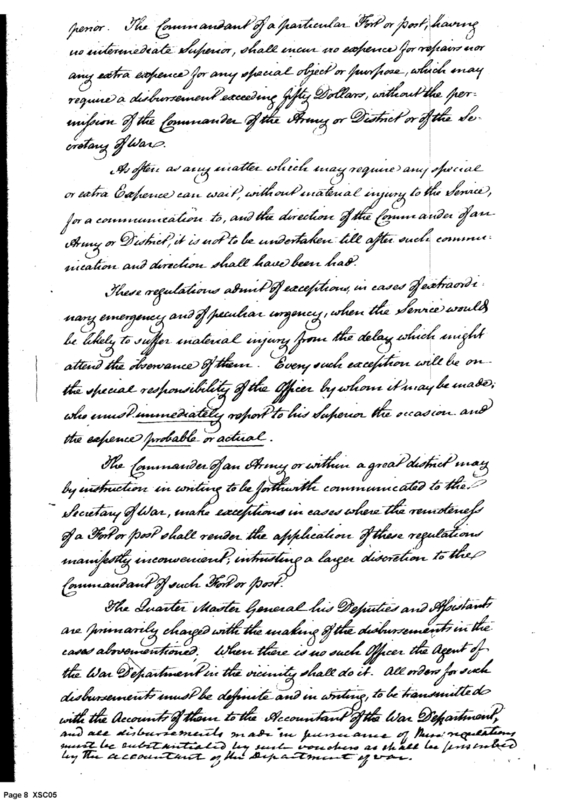 perior. The Commandant of a particular Fort or post, having
no intermediate Superior, shall incur no expence for repairs nor
any extra expence for any special object or purpose, which may
require a disbursement exceeding fifty Dollars, without the per-
mission of the Commander of the Army or District or of the Se-
cretary of War.
As often as any matter which may require any special
or extra Expence can wait, without material injury to the Service,
for a communication to, and the direction of the Commander of an
Army or District, it is not to be undertaken till after such commu-
nication and direction shall have been had.
These regulations admit of exceptions, in cases of extraordi-
nary emergency and of peculiar urgency, when the Service would
be likely to suffer material injury from the delay which might
attend the observance of them. Every such exception will be on
the special responsibility of the Officer by whom it may be made;
who must immediately report to his Superior the occasion and
the expence probable or actual.
The Commander of an Army or within a great district may
by instruction in writing to be forthwith communicated to the
Secretary of War, make exceptions in cases where the remoteness
of a Fort or post shall render the application of these regulations
manifestly inconvenient, intrusting a larger discretion to the
Commandant of such Fort or Post.
The Quarter Master General his Deputies and Assistants
are primarily charged with the making of the disbursements in the
cases abovementioned. When there is no such Officer the Agent of
the War Department in the vicinity shall do it. All orders for such
disbursements must be definite and in writing, to be transmitted
with the Accounts of them to the Accountant of the War Department,
and all disbursements made in pursuance of these regulations
must be substantiated by such vouchers as shall be prescribed
by the accountant of the Department of war.
Page 8 XSC05